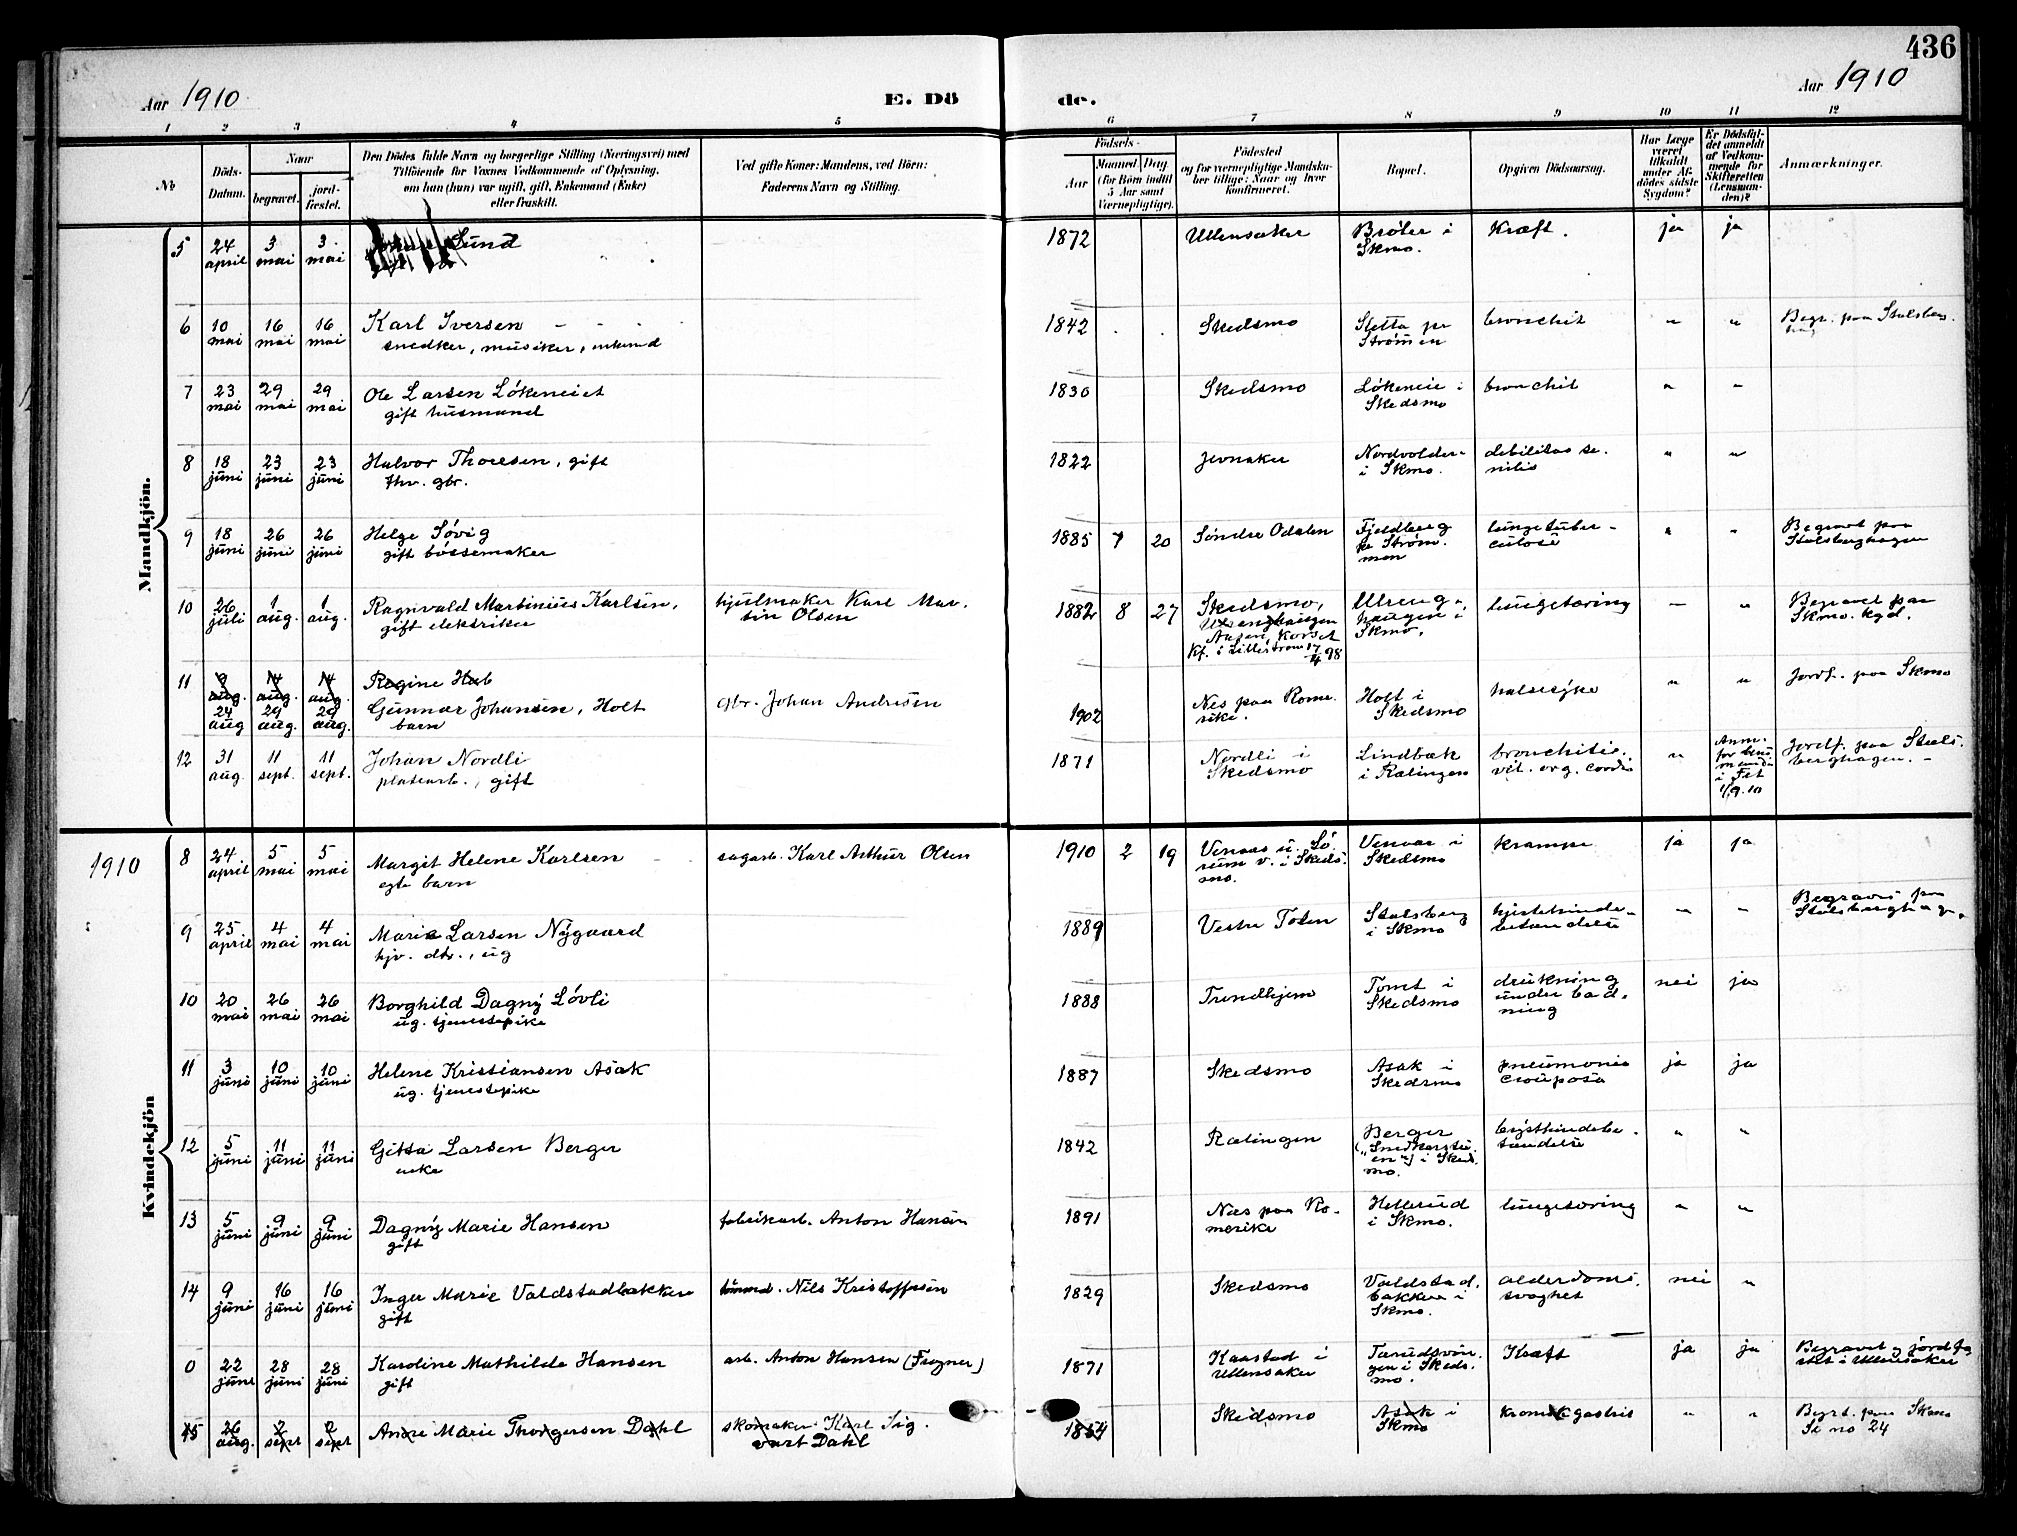 436
Aar 1910
E. Dö
de.
Aar 1910
1 2 3 4 5 6 7 8 9 10 11 12
No
Döds-
Datum.
Naar
begravet.
jord-
fæstet.
Den Dödes fulde Navn og borgerlige Stilling (Næringsvei) med
Tilföiende for Voxnes Vedkommende af Oplysning,
om han (hun) var ugift, gift, Enkemand (Enke)
eller fraskilt.
Ved gifte Koner: Mandens, ved Börn:
Faderens Navn og Stilling.
Födsels-
Aar
Maaned Dag
(for Börn indtil
5 Aar samt
Værnepligtige).
Födested
og for værnepligtige Mandska-
ber tillige: Naar og hvor
konfirmeret.
Bopæl.
Opgiven Dödsaarsag.
Har Læge
været
tilkaldt
under Af-
dödes sidste
Sygdom?
Er Dödsfal-
det anmeldt
af Vedkom-
mende for
Skifteretten
(Lensman-
den)?
Anmærkninger.
Mandkjön.
5 24 april 3 mai 3 mai Lund 1872 Ullensaker Bröter i Skmo. Kræft. ja ja
6 10 mai 16 mai 16 mai Karl Iversen 1842 Skedsmo Sletta pr Strömmen bronchit " " Begr. paa Stalsberg-
snedker, musiker, enkemd
7 23 mai 29 mai 29 mai Ole Larsen Lökeneiet 1830 Skedsmo Lökeneie i Skedsmo bronchit " "
gift husmand
8 18 juni 23 juni 23 juni Halvor Thoresen, gift 1822 Jevnaker Nordvolden i Skmo. debilitas senilis " "
fhv. gbr.
9 18 juni 26 juni 26 juni Helge Sövig 1885 7 20 Söndre Odalen Fjeldberg pr Ström-
men lungetuber-
culose " " Begravet paa Stalsberghagen
gift bössemaker
10 26 juli 1 aug. 1 aug. Ragnvald Martinius Karlsen, hjulmaker Karl Mar-
tin Olsen 1882 8 27 Skedsmo, Ulrenghaugen i Skmo, lungetæring — " Begravet paa Skmo. kgd.
gift elektriker
Kf. i Lilleström 17/4 98
11 9 aug. 14 aug. 14 aug. Regine
24 aug 29 aug. 29 aug. Gunnar Johansen, Holt gbr. Johan Andresen 1902 Nes paa Rome-
rike. Holt i Skedsmo halsesyke " " Jordf. paa Skmo
barn
12 31 aug. 11 sept. 11 sept. Johan Nordli 1871 Nordli i Skedsmo Lindbæk i Rælingen bronchitis. vit. org. cordis " Anm. for lens-
manden i Fet 1/9.10 Jordf. paa Stals-
berghagen. –
platearb., gift
1910
Kvindekjön
8 24 april 5 mai 5 mai Margit Helene Karlsen sagarb. Karl Arthur Olsen 1910 2 19 Venaas u. Lö-
rum v. i Skeds-
mo. Venaas i Skedsmo krampe ja ja
egte barn
9 25 april 4 mai 4 mai Marie Larsen Nygaard 1889 Vestre Toten Stalsberg i Skmo hjertehinde-
betændelse " " Begravet paa Stalsberghagen
hjv. dtr., ug
10 20 mai 26 mai 26 mai Borghild Dagny Lövli 1888 Trondhjem Tomt i Skedsmo drukning under bad-
ning nei ja
ug. tjenestepike
11 3 juni 10 juni 10 juni Helene Kristiansen Asak 1887 Skedsmo Asak i Skedsmo pneumonia crouposa ja ja
ug. tjenestepike
12 5 juni 11 juni 11 juni Gitta Larsen Berger 1842 Rælingen Berger ("Snedkerstu-
en") i Skeds-
mo. brysthindebe-
tændelse " "
enke
13 5 juni 9 juni 9 juni Dagny Marie Hansen fabrikarb. Anton Hansen 1891 Næs paa Ro-
merike Hellerud i Skmo. lungetæring " "
gift
14 9 juni 16 juni 16 juni Inger Marie Valdstadbakken tömmd. Nils Kristoffersen 1829 Skedsmo Valdstad-
bakken i Skmo. alderdoms-
svaghet nei "
gift
0 22 juni 28 juni 28 juni Karoline Mathilde Hansen arb. Anton Hansen (Fugner) 1871 Kaastad i Ullensaker Tærudsvin-
gen i Skeds-
mo. Kræft ja ja Begravet og jordfæ-
stet i Ullensaker
gift
15 26 aug. 2 sept 2 sept Anne Marie Thorgersen Dahl skomaker Karl Sig-
vart Dahl 1854 Skedsmo Asak i Skmo kronisk gastrit " " Begr. paa Skmo
Se no 24